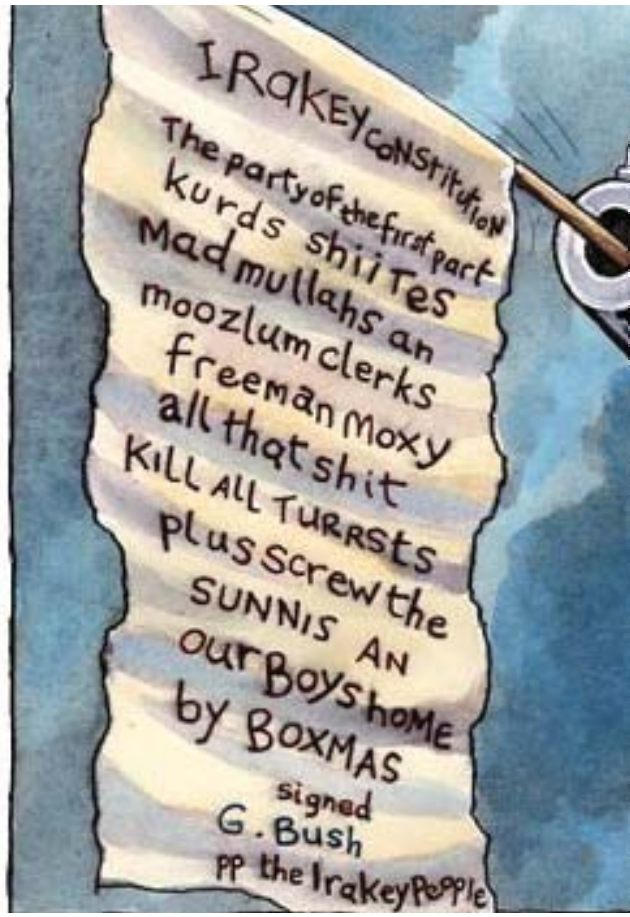 IRaKEY CoNStitutioN
The party of the first part
kurds shiiTes
Mad mullahs an
moozlum clerks
freeman moxy
all that shit
KiLL ALL TURRSts
plus screw the
SUNNIS AN
our BoYs hoME
by BOXMAS
signed
G. Bush
pp the Irakey Pepple